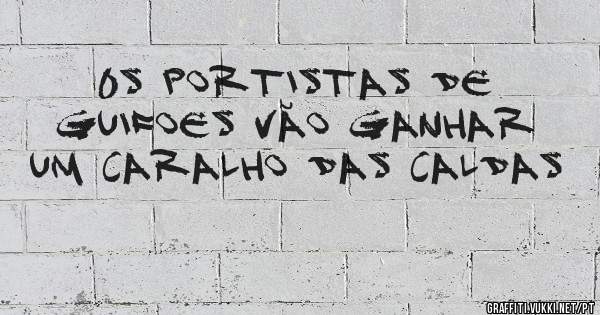 OS PORTISTAS DE
GUIFOES VÃO GANHAR
UM CARALHO DAS CALDAS
GRAFFITI.VUKKI.NET/PT